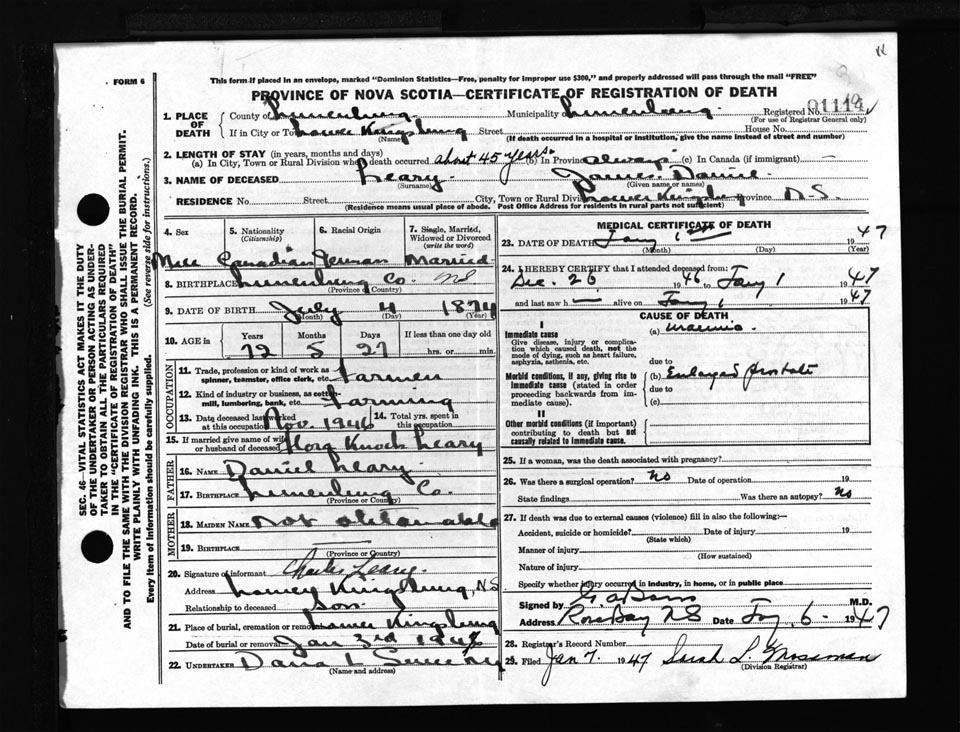 FORM 6
This form if placed in an envelope, marked "Dominion Statistics—Free, penalty for improper use $300," and properly addressed will pass through the mail "FREE"
PROVINCE OF NOVA SCOTIA—CERTIFICATE OF REGISTRATION OF DEATH
1. PLACE OF DEATH
County of Lunenburg Municipality Lunenburg. Registered No. 01114
(For use of Registrar General only)
If in City or Town Lower Kingsburg Street House No.
(Name) (If death occurred in a hospital or institution, give the name instead of street and number)
2. LENGTH OF STAY (in years, months and days)
(a) In City, Town or Rural Division where death occurred about 45 years. (b) In Province always (c) In Canada (if immigrant) —
3. NAME OF DECEASED Leary. James Daniel
(Surname) (Given name or names)
RESIDENCE No. Street City, Town or Rural Division Lower Kingsburg Province N.S.
(Residence means usual place of abode. Post Office Address for residents in rural parts not sufficient)
4. Sex 5. Nationality (Citizenship) 6. Racial Origin 7. Single, Married, Widowed or Divorced (write the word)
Male Canadian German Married
8. BIRTHPLACE Lunenburg Co. N.S.
(Province or Country)
9. DATE OF BIRTH July 4 1874
(Month) (Day) (Year)
10. AGE in Years Months Days If less than one day old
72 5 27 hrs. or min.
OCCUPATION
11. Trade, profession or kind of work as spinner, teamster, office clerk, etc. Farmer
12. Kind of industry or business, as cotton-mill, lumbering, bank, etc. Farming
13. Date deceased last worked at this occupation Nov. 1946 14. Total yrs. spent in this occupation
15. If married give name of wife or husband of deceased Flora Knock Leary
FATHER
16. NAME Daniel Leary.
17. BIRTHPLACE Lunenburg Co.
(Province or Country)
MOTHER
18. MAIDEN NAME Not obtainable
19. BIRTHPLACE
(Province or Country)
20. Signature of informant Charles Leary.
Address Lower Kingsburg, N.S
Relationship to deceased Son.
21. Place of burial, cremation or removal Lower Kingsburg
Date of burial or removal Jan 3rd 1947
22. UNDERTAKER Dana L
(Name and address)
MEDICAL CERTIFICATE OF DEATH
23. DATE OF DEATH Jany 1st 1947
(Month) (Day) (Year)
24. I HEREBY CERTIFY that I attended deceased from:
Dec. 26 1946 to Jany 1 1947
and last saw h — alive on Jany 1 1947
CAUSE OF DEATH
I
Immediate cause (a) uraemia.
Give disease, injury or complication which caused death, not the mode of dying, such as heart failure, asphyxia, asthenia, etc.
due to
Morbid conditions, if any, giving rise to immediate cause (stated in order proceeding backwards from immediate cause). (b) Enlarged prostate
due to
(c)
II
Other morbid conditions (if important) contributing to death but not causally related to immediate cause.
25. If a woman, was the death associated with pregnancy?
26. Was there a surgical operation? No Date of operation 19
State findings Was there an autopsy? No
27. If death was due to external causes (violence) fill in also the following:
Accident, suicide or homicide? Date of injury 19
(State which)
Manner of injury
(How sustained)
Nature of injury
Specify whether injury occurred in industry, in home, or in public place
Signed by M.D.
Address Rose Bay N S Date Jany 6 - 1947
28. Registrar's Record Number
29. Filed Jan 7. 1947 Sarah L. Mossman
(Division Registrar)
SEC. 46—VITAL STATISTICS ACT MAKES IT THE DUTY
OF THE UNDERTAKER OR PERSON ACTING AS UNDER-
TAKER TO OBTAIN ALL THE PARTICULARS REQUIRED
IN THE "CERTIFICATE OF REGISTRATION OF DEATH"
AND TO FILE THE SAME WITH THE DIVISION REGISTRAR WHO SHALL ISSUE THE BURIAL PERMIT.
WRITE PLAINLY WITH UNFADING INK. THIS IS A PERMANENT RECORD.
Every item of Information should be carefully supplied. (See reverse side for instructions.)